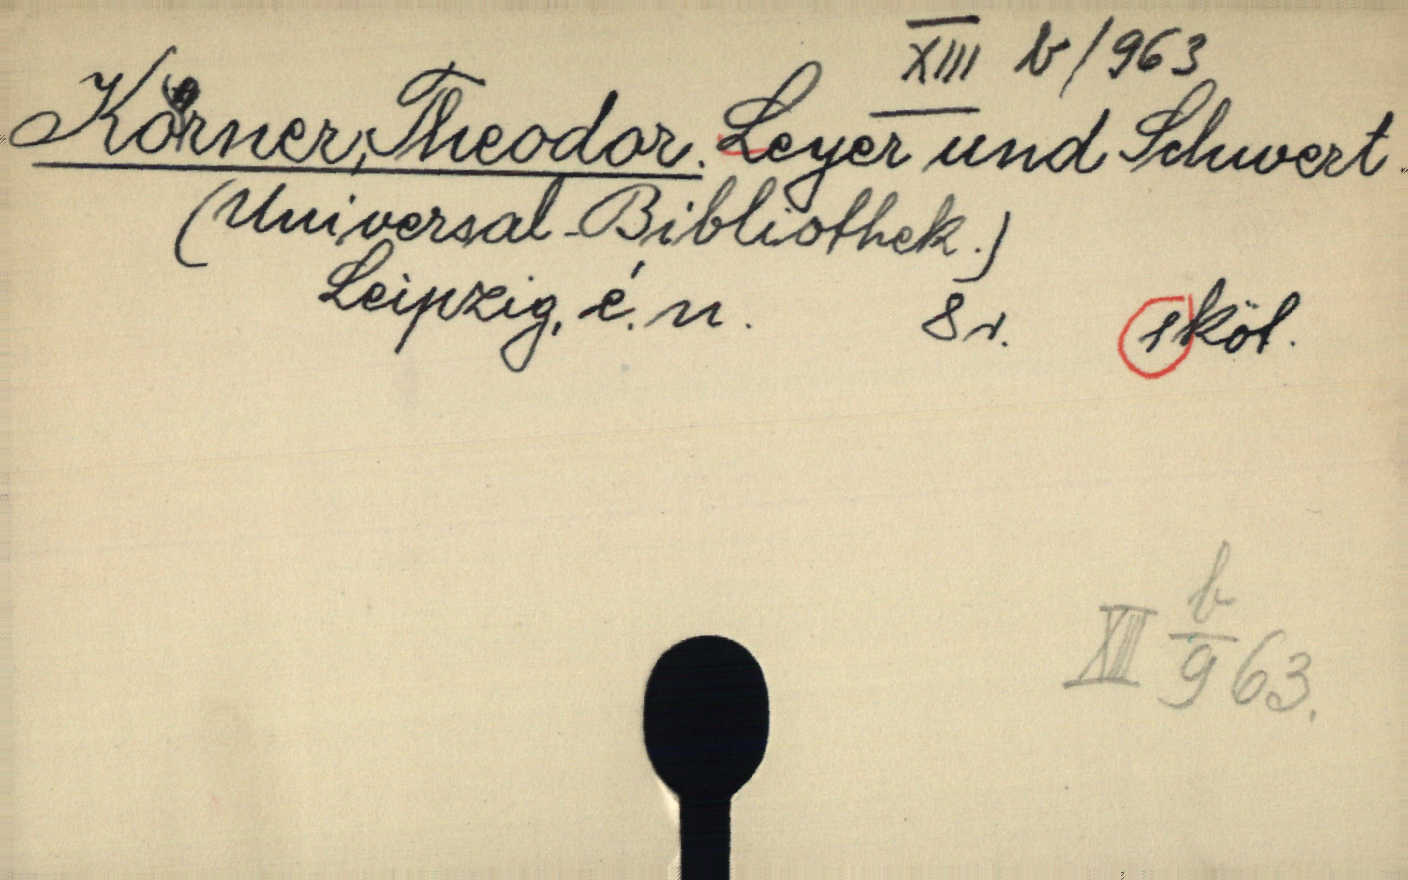 XIII b/963
Körner, Theodor. Leyer und Schwert.
(Universal-Bibliothek.)
Leipzig, é. n. 8r. 1 köt.
XIII b/963.